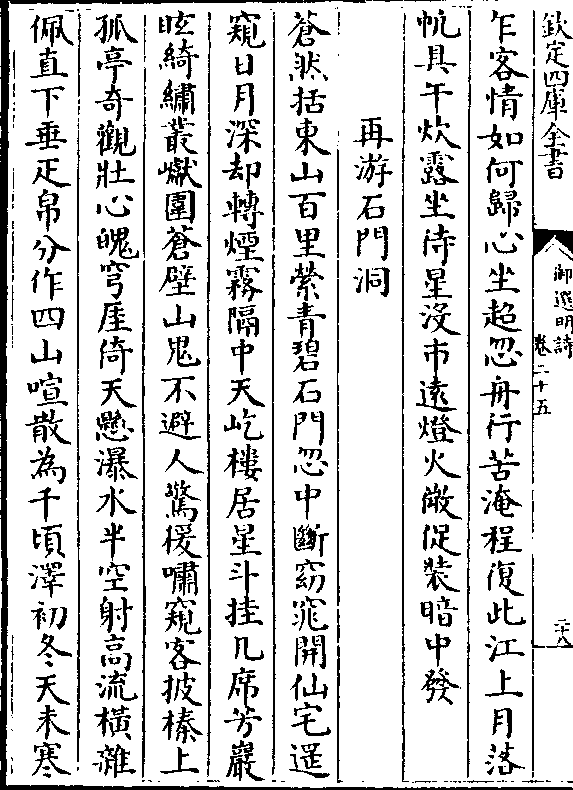 欽定四庫全書
御選明詩
卷二十五
二十八
乍客情如何歸心坐超忽舟行苦淹程復此江上月落
帆具午炊露坐待星没市遠燈火微促裝暗中發
再游石門洞
蒼然括東山百里縈青碧石門忽中斷窈窕開仙宅遥
窺日月深却轉煙霧隔中天屹樓居星斗挂几席芳巖
眩綺繡叢巘圍蒼壁山鬼不避人驚猨嘯窺客披榛上
孤亭奇觀壯心魄穹厓倚天懸瀑水半空射高流橫雜
佩直下垂疋帛分作四山喧散為千頃澤初冬天未寒